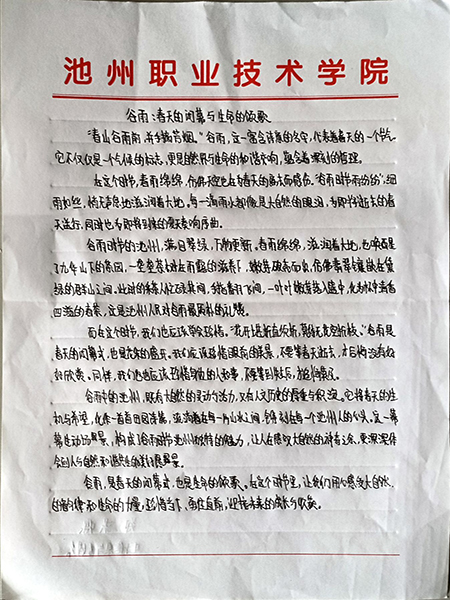 池州职业技术学院
谷雨:春天的闭幕与生命的颂歌
"春山谷雨前,并手摘芳烟。"谷雨,这一富含诗意的名字,代表着春天的一个节气
它不仅仅是一个气候的标志,更是自然界与生命的和谐共鸣,蕴含着深刻的哲理。
在这个时节,春雨绵绵,仿佛不应也在为春天的离去而感伤。"谷雨时节雨纷纷",细
雨如丝,悄无声息地滋润着大地。每一滴雨水都像是大自然的眼泪,为即将逝去的春
天送行,同时也为即将到来的夏天奏响序曲。
谷雨时节的池州,满目翠绿,万物更新。春雨绵绵,滋润着大地,也唤醒
了九华山下的茶园,一垄垄茶树在雨露的滋养下,嫩芽破壳而出,仿佛翡翠镶嵌在黛
绿的群山之间。此时的采茶人忙碌其间,纤指翻飞间,一叶叶嫩芽落入篮中,化为杯中清香
四溢的春茶,这是池州人民对谷雨最质朴的礼赞。
而在这个时节,我们也应该学会珍惜。"花开堪折直须折,莫待无花空折枝。"谷雨是
春天的闭幕式,也是大自然的盛宴。我们应该珍惜眼前的美景,不要等春天逝去,才后悔没有好
好欣赏。同样,我们也应该珍惜身边的人和事,不要等到失去后,才懂得珍惜。
谷雨中的池州,既有大自然的灵动与活力,又有人文历史的厚重与积淀。它将春天的生
机与希望,化作一首首田园诗篇,流淌在每一片山水之间,铭刻在每一个池州人的心头。这一幕
幕生动的场景,构成了谷雨时节池州独特的魅力,让人在感叹大自然的神奇之余,更深深体
会到人与自然和谐共生的美好愿景。
谷雨,是春天的闭幕式,也是生命的颂歌。在这个时节里,让我们用心感受大自然
的韵律和生命的力量,珍惜当下,勇往直前,迎接未来的成长与收获。